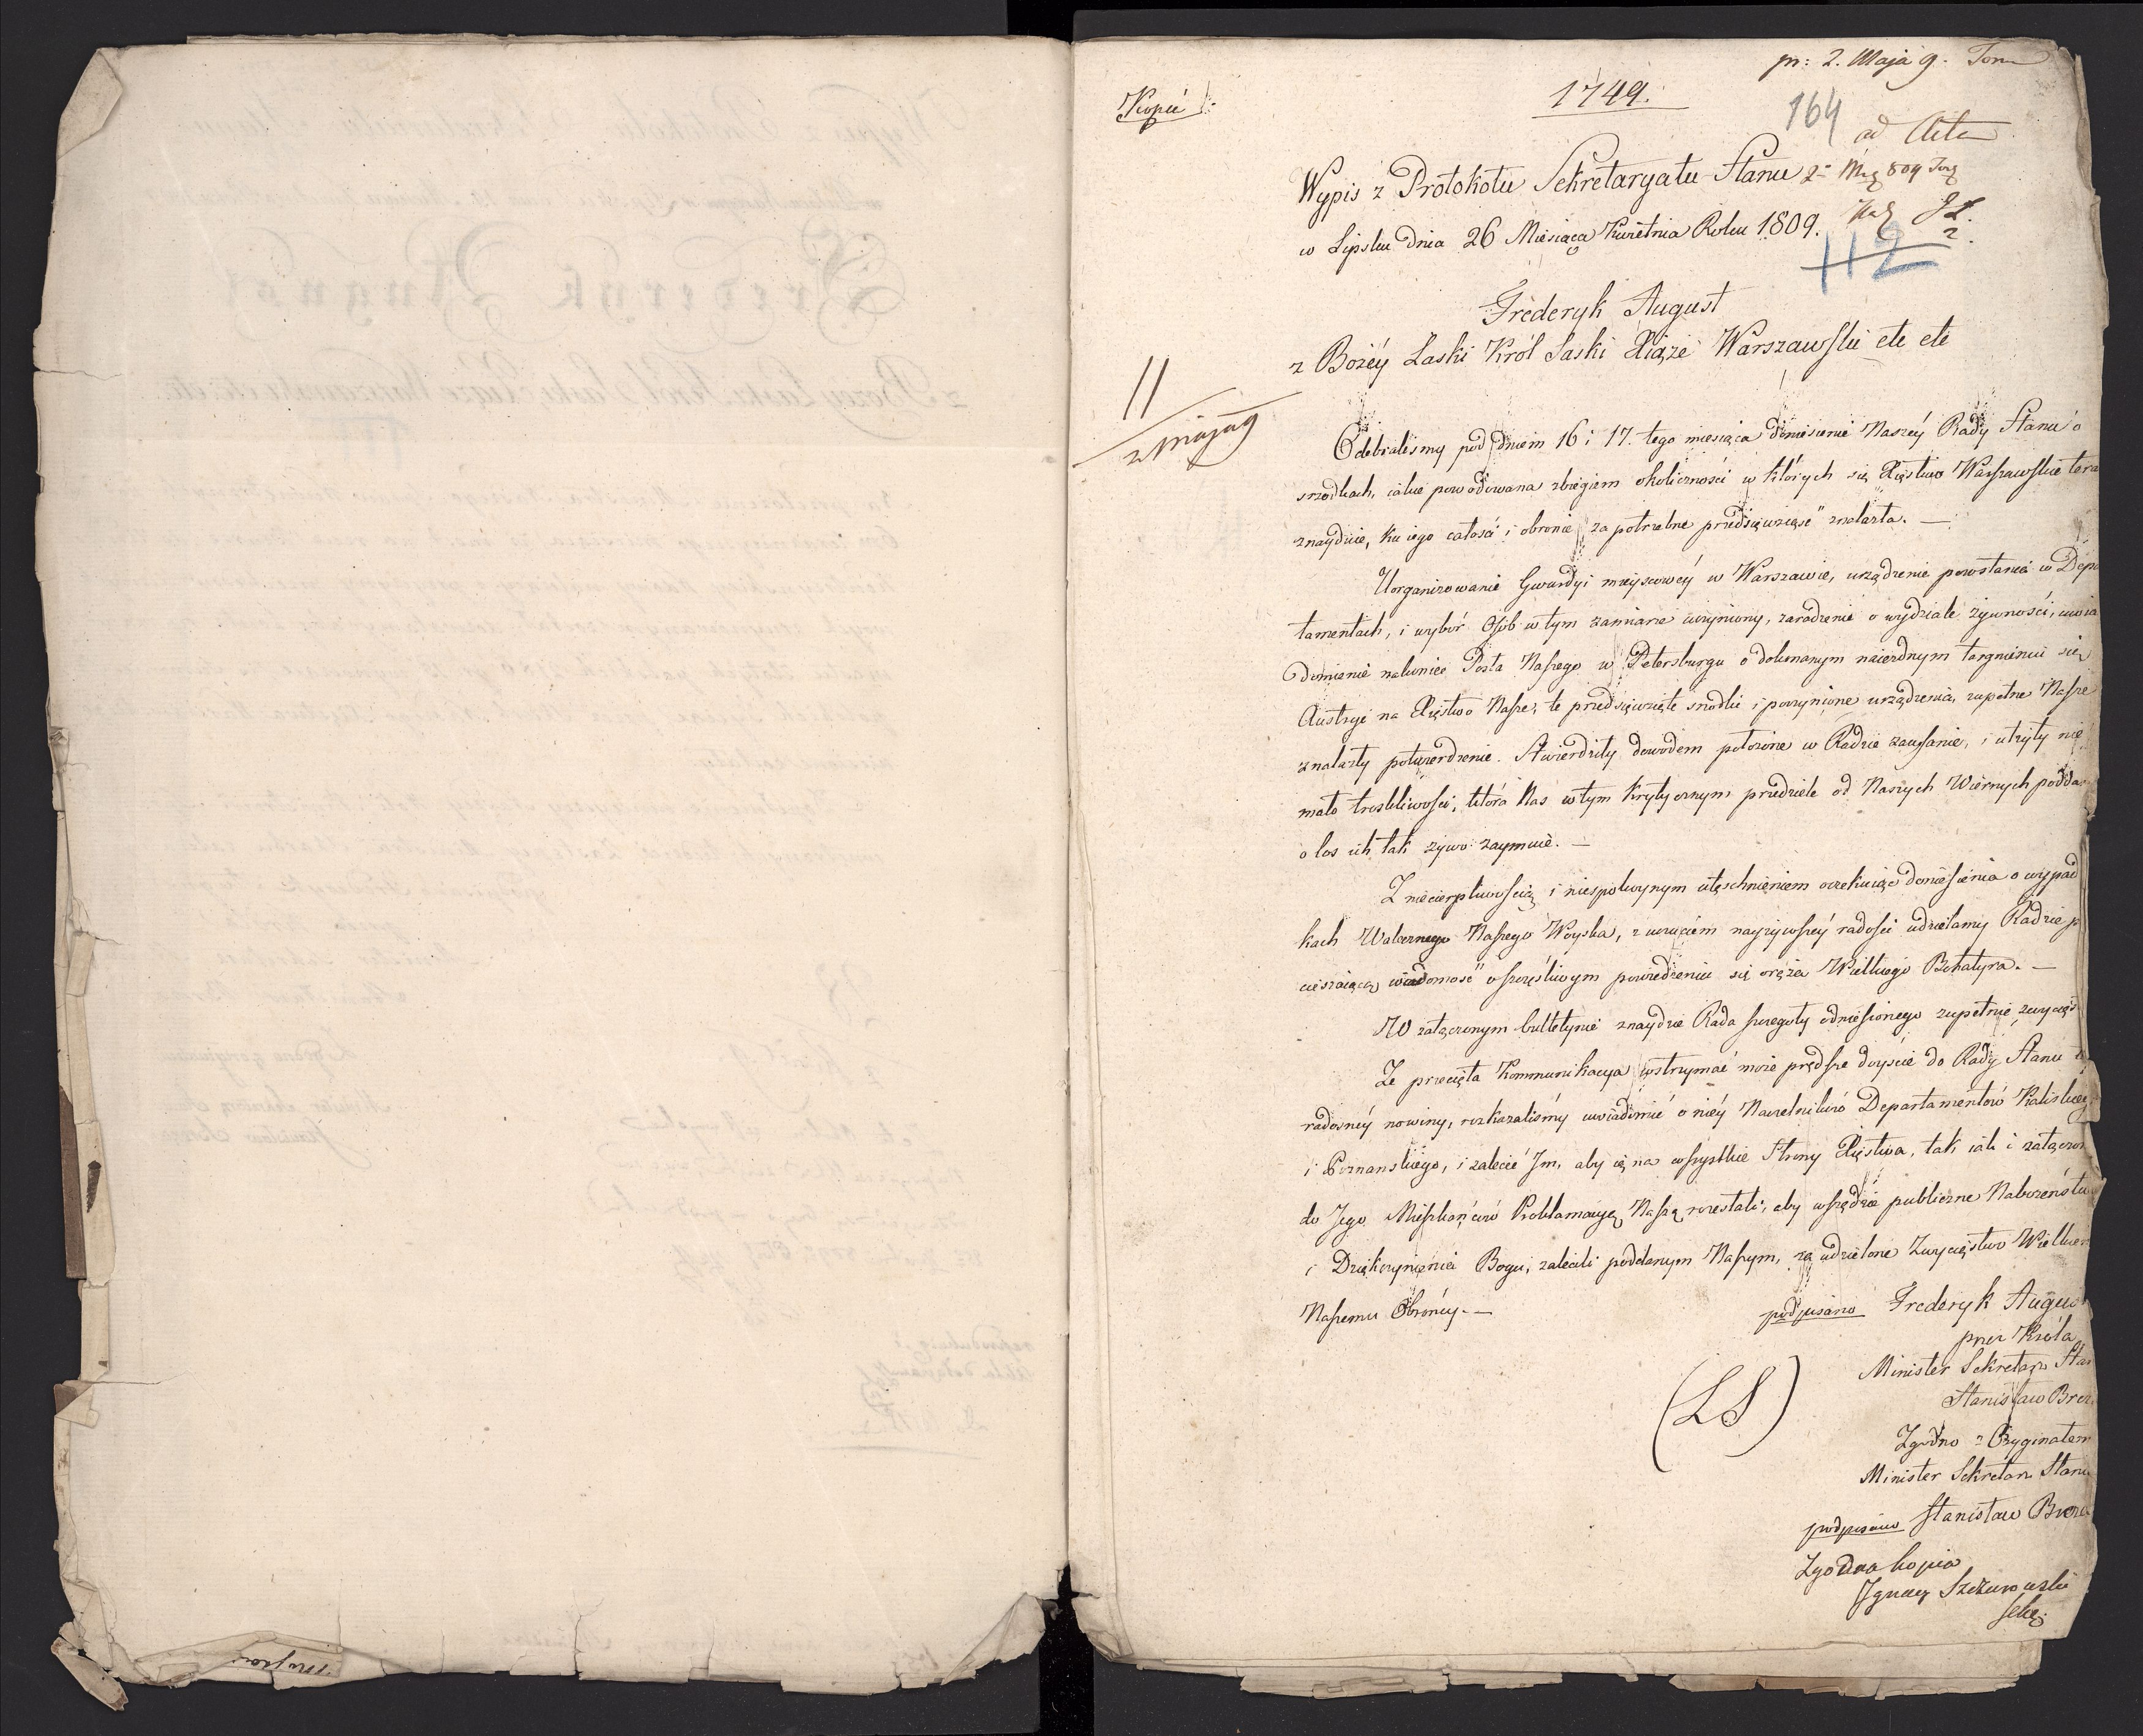 pr: 2. Maja 9.
Kopia
1749.
164
ad Acta
Wypis z Protokołu Sekretaryatu Stanu
w Lipsku dnia 26 Miesiąca Kwietnia Roku 1809.
112
Fréderyk August
z Bożéy Łaski Król Saski Xiąże Warszawski etc etc
11
2 Maja 9
Odebraliśmy pod dniem 16 i 17. tego miesiąca doniesienie Naszéy Rady Stanu o
srzodkach, iakie powodowana zbiegiem okoliczności w których się Xięstwo Warszawskie tera
znayduie, ku iego całości i obronie za potrzebne przedsięwziąść znalazła. —
Uorganizowanie Gwardyi mieyscowéy w Warszawie, urządzenie powstania w Depa
tamentach, i wybór Osób w tym zamiarze uczyniony, zaradzenie o wydziale żywności, uwia
domienie nakoniec Posła Naszego w Petersburgu o dokonanym naiezdnym targnieniu się
Austryi na Xięstwo Nasze, te przedsięwzięte srzodki i poczynione urządzenia, zupełne Nasze
znalazły potwierdzenie. Stwierdziły dowodem położone w Radzie zaufanie, i ulżyły nie
mało troskliwości, która Nas w tym krytycznym przedziele od Naszych Wiernych podda
o los ich tak żywo zaymuie. —
Z niecierpliwością i niespokoynym utęschnieniem oczekuiąc doniesienia o wypad
kach Walecznego Naszego Woyska, z uczuciem nayżywszéy radości udzielamy Radzie p
cieszaiącą wiadomość o szczęśliwym powiedzeniu się oręża Wielkiego Bohatyra. —
W załączonym bulletynie znaydzie Rada szczegoły odniesionego zupełnie zwycięs
Że przecięta Kommunikacya wstrzymać może prędsze doyście do Rady Stanu
radosnéy nowiny, rozkazaliśmy uwiadomić o niéy Naczelników Departamentów Kaliskieg
i Poznanskiego, i zalecić Im, aby ią na wszystkie Strony Xięstwa, tak iak i załączon
do Jego Mieszkańców Proklamacyę Naszą rozesłali, aby wszędzie publiczne Nabożeństw
i Dziękczynienia Bogu, zalecili poddanym Naszym, za udzielone Zwycięstwo Wielkie
Naszemu Obrońcy. —
podpisano Frederyk Augus
przez Króla
Minister Sekretarz Stan
Stanisław Brez
(LS)
Zgodno z Oryginałem
Minister Sekretarz Stanu
podpisano Stanisław Breza
Zgodna kopia
Ignacy Szczurowski
Sekr: